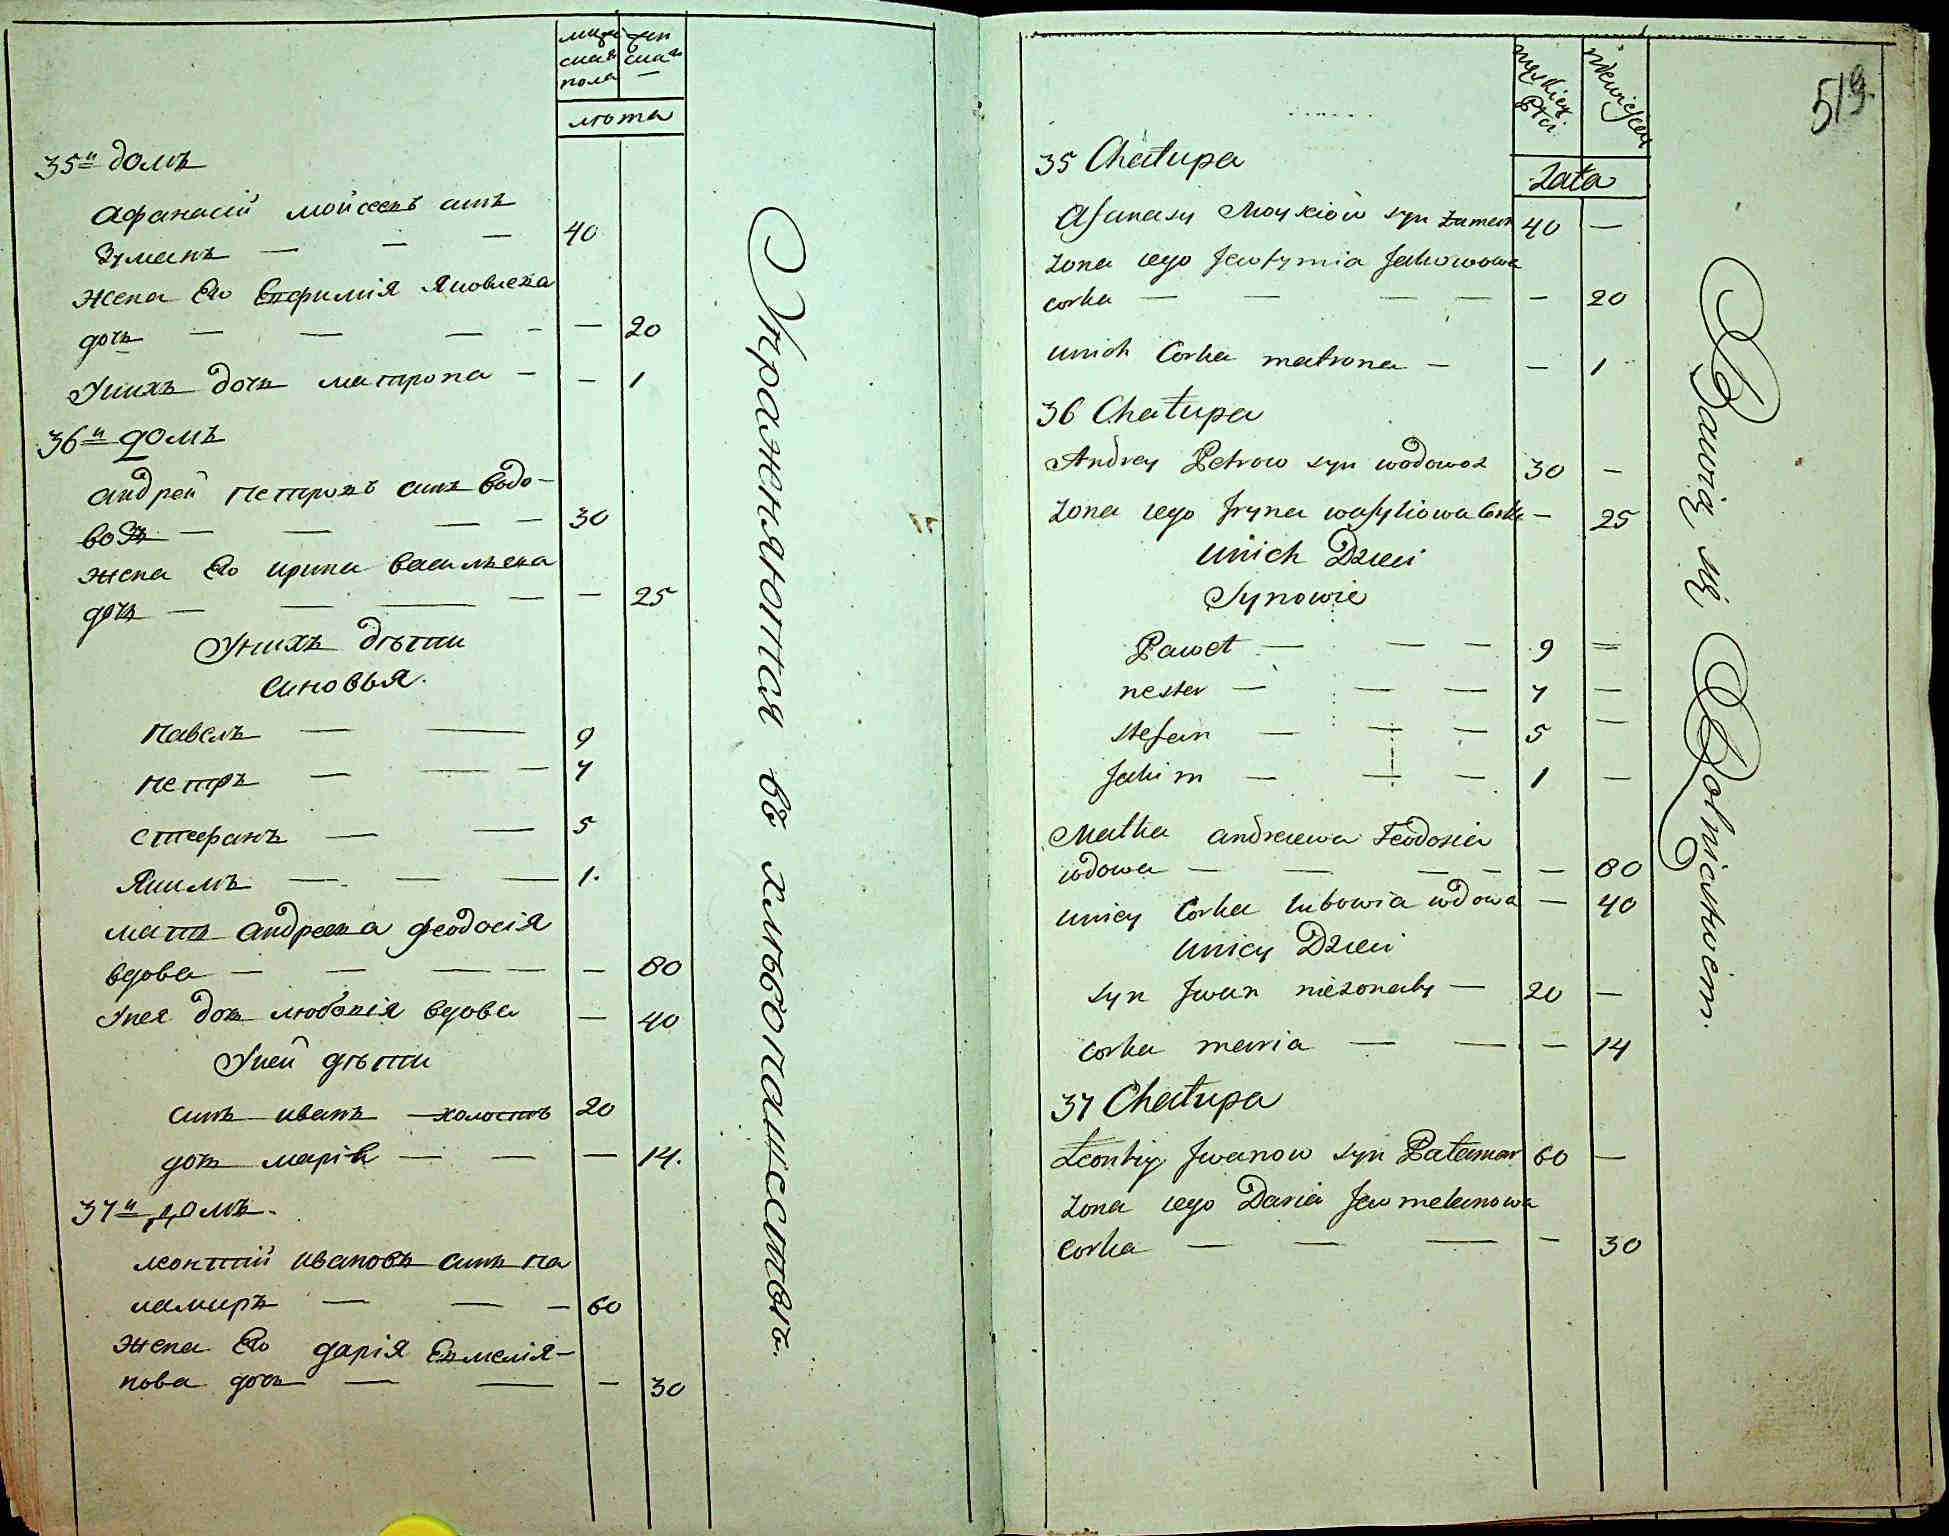 мужеска пола женска
лѣта
35й домъ
Афанасій Мойсеевъ синъ
Зуманъ — — — 40
Жена Его Евфимія Яковлева
дочь — — — - — 20
Унихъ дочь матрона - - 1
36й домъ
андрей Петровъ синъ Водо-
возъ — — — — 30
Жена Его ирина Васильева
дочь — — — — — 25
Унихъ дѣти
синовья.
Павелъ — — 9
Петръ — — — 7
Стефанъ — — 5
Якимъ — — — 1.
мать андреева феодосія
вдова — — — — — 80
Унея дочь любовія вдова — 40
Уней дѣти
синъ иванъ холостъ 20
дочь марія — — — 14.
37й домъ.
леонтій ивановъ синъ Па
ламаръ — — — 60
Жена Его дарія Евмелія-
нова дочь — — — 30
Упражняются въ хлѣбопашествѣ.
519.
męskiey Płci niewieściey
Lata
35 Chałupa
Afanasy Moysiiow syn Zuman 40 —
Zona iego Jewfymia Jakowowa
corka — — — — — 20
unich Corka matrona — — 1
36 Chałupa
Andrey Petrow syn wodowoz 30 —
Zona iego Jryna wasyliowa Corka — 25
unich Dzieci
Synowie
Paweł — — — 9 —
nester — — — 7 —
stefan — — — 5 —
Jakim — — — 1 —
Matka andreiewa Teodosia
wdowa — — — — — 80
uniey Corka lubowia wdowa — 40
uniey Dzieci
syn Jwan niezonaty — 20 —
corka maria — — — 14
37 Chałupa
Leontiy Jwanow syn Pałamar 60 —
Zona iego Daria Jewmelanowa
Corka — — — — 30
Bawią się Rolnictwem.